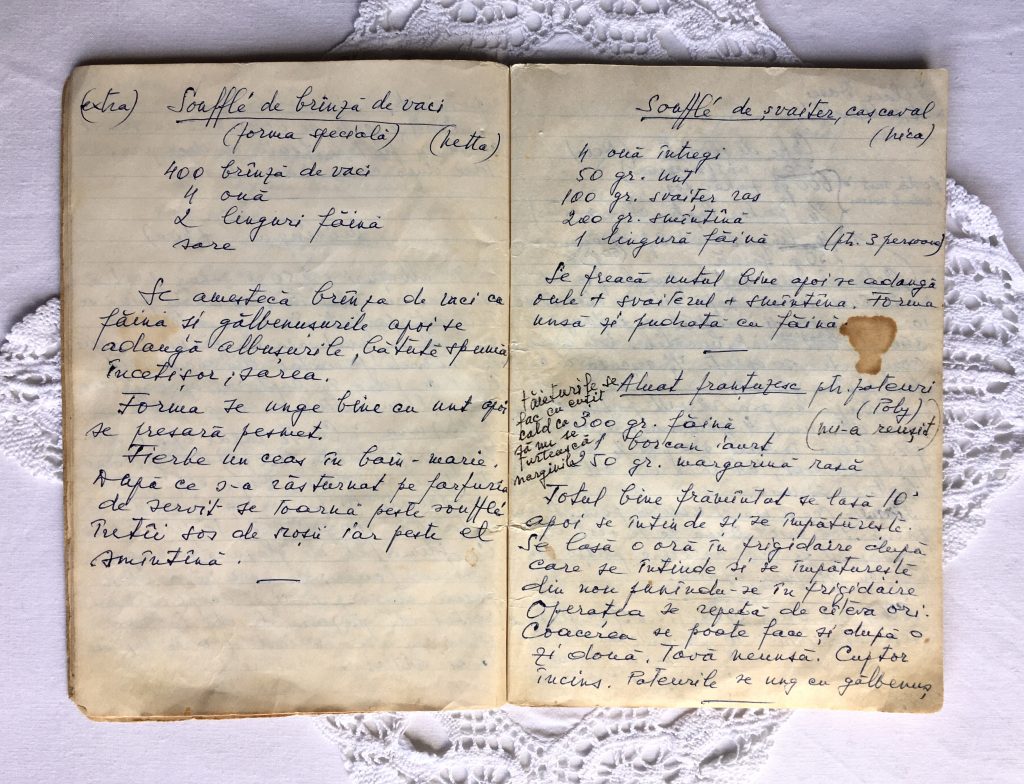 (extra) Soufflé de brînză de vaci
(forma specială) (Netta)
400 brînză de vaci
4 ouă
2 linguri făină
sare
Se amestecă brînza de vaci cu
făina și gălbenușurile apoi se
adaugă albușurile, bătute spumă,
încetișor; sarea.
Forma se unge bine cu unt apoi
se presară pesmet.
Fierbe un ceas în bain-marie.
După ce s-a răsturnat pe farfuria
de servit se toarnă peste soufflé
întîi sos de roșii iar peste el
smîntînă.
Soufflé de svaiter, cașcaval
(Nica)
4 ouă întregi
50 gr. unt
100 gr. svaiter ras
200 gr. smîntînă
1 lingură făină (ptr. 3 persoane)
Se freacă untul bine apoi se adaugă
oule + svaiterul + smîntîna. Forma
unsă și pudrată cu făină
Aluat franțuzesc ptr. pateuri
(Poly)
(mi-a reușit)
300 gr. făină
1 borcan iaurt
250 gr. margarină rasă
tăieturile se
fac cu cuțit
cald ca
să nu se
turtească
marginile
Totul bine frămîntat se lasă 10'
apoi se întinde si se împăturește.
Se lasă o oră în frigidaire după
care se întinde si se împăturește
din nou punîndu-se în frigidaire
Operația se repetă de cîteva ori.
Coacerea se poate face și după o
zi două. Tavă neunsă. Cuptor
încins. Pateurile se ung cu gălbenuș